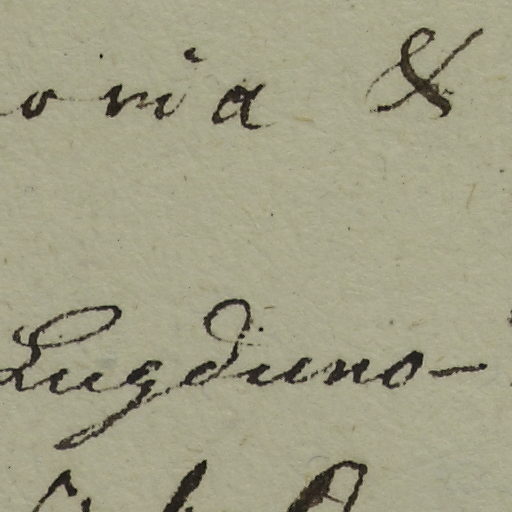 onia &
Lugduno-